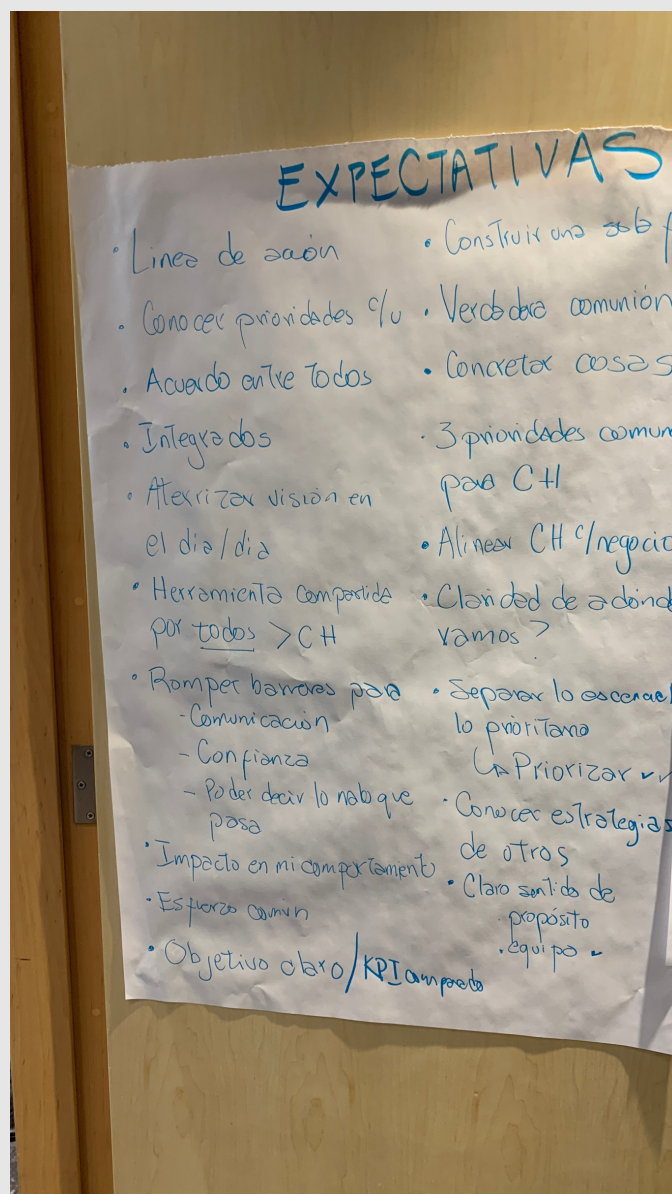 EXPECTATIVAS
• Linea de acción
• Conocer prioridades c/u
• Acuerdo entre Todos
• Integrados
• Aterrizar visión en
el dia/dia
• Herramienta compartida
por todos > CH
• Romper barreras para
- Comunicación
- Confianza
- Poder decir lo que
pasa
• Impacto en mi comportamiento
• Esfuerzo común
• Objetivo claro/KPI
• Construir una
• Verdadera comunión
• Concretar cosas
• 3 prioridades
para CH
• Alinear CH c/negocio
• Claridad de
vamos?
• Separar lo
lo prioritario
↳ Priorizar ✓✓
• Conocer estrategias
de otros
• Claro sentido de
• propósito
• equipo